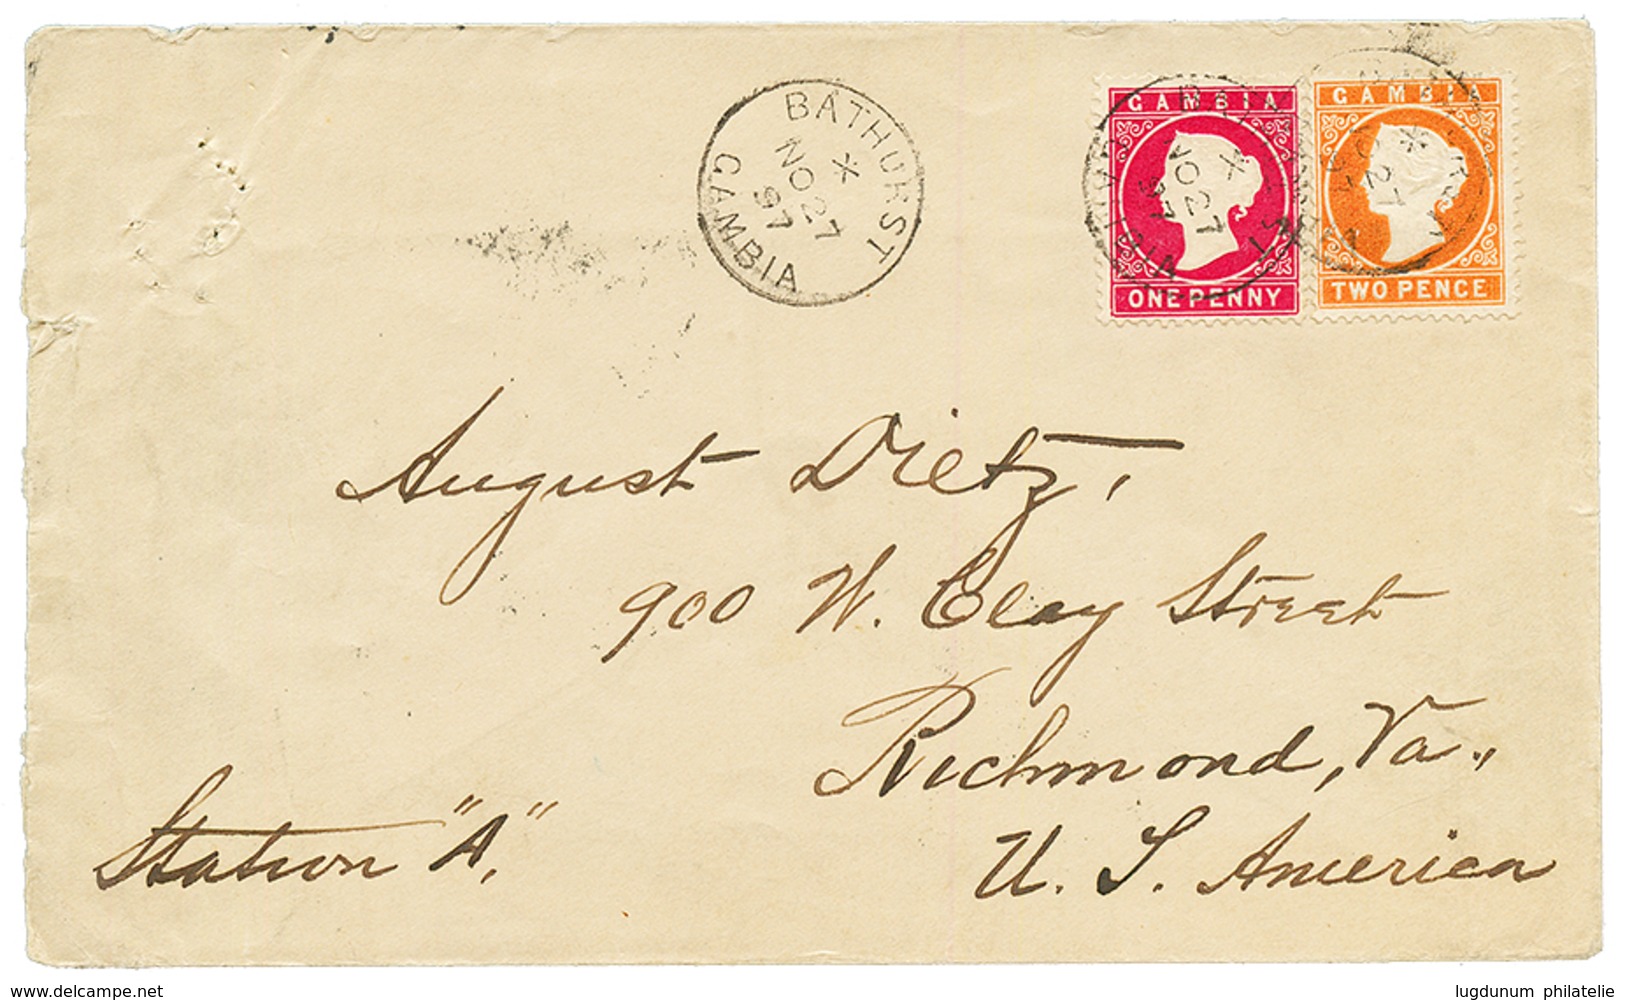 BATHURST
*
NO 27
97
GAMBIA
GAMBIA
ONE PENNY
NO 27
97
GAMBIA
TWO PENCE
27
August Dietz,
900 W. Clay Street
Richmond, Va.,
U. S. America
Station "A."
delcampe.net
lugdunum philatelie